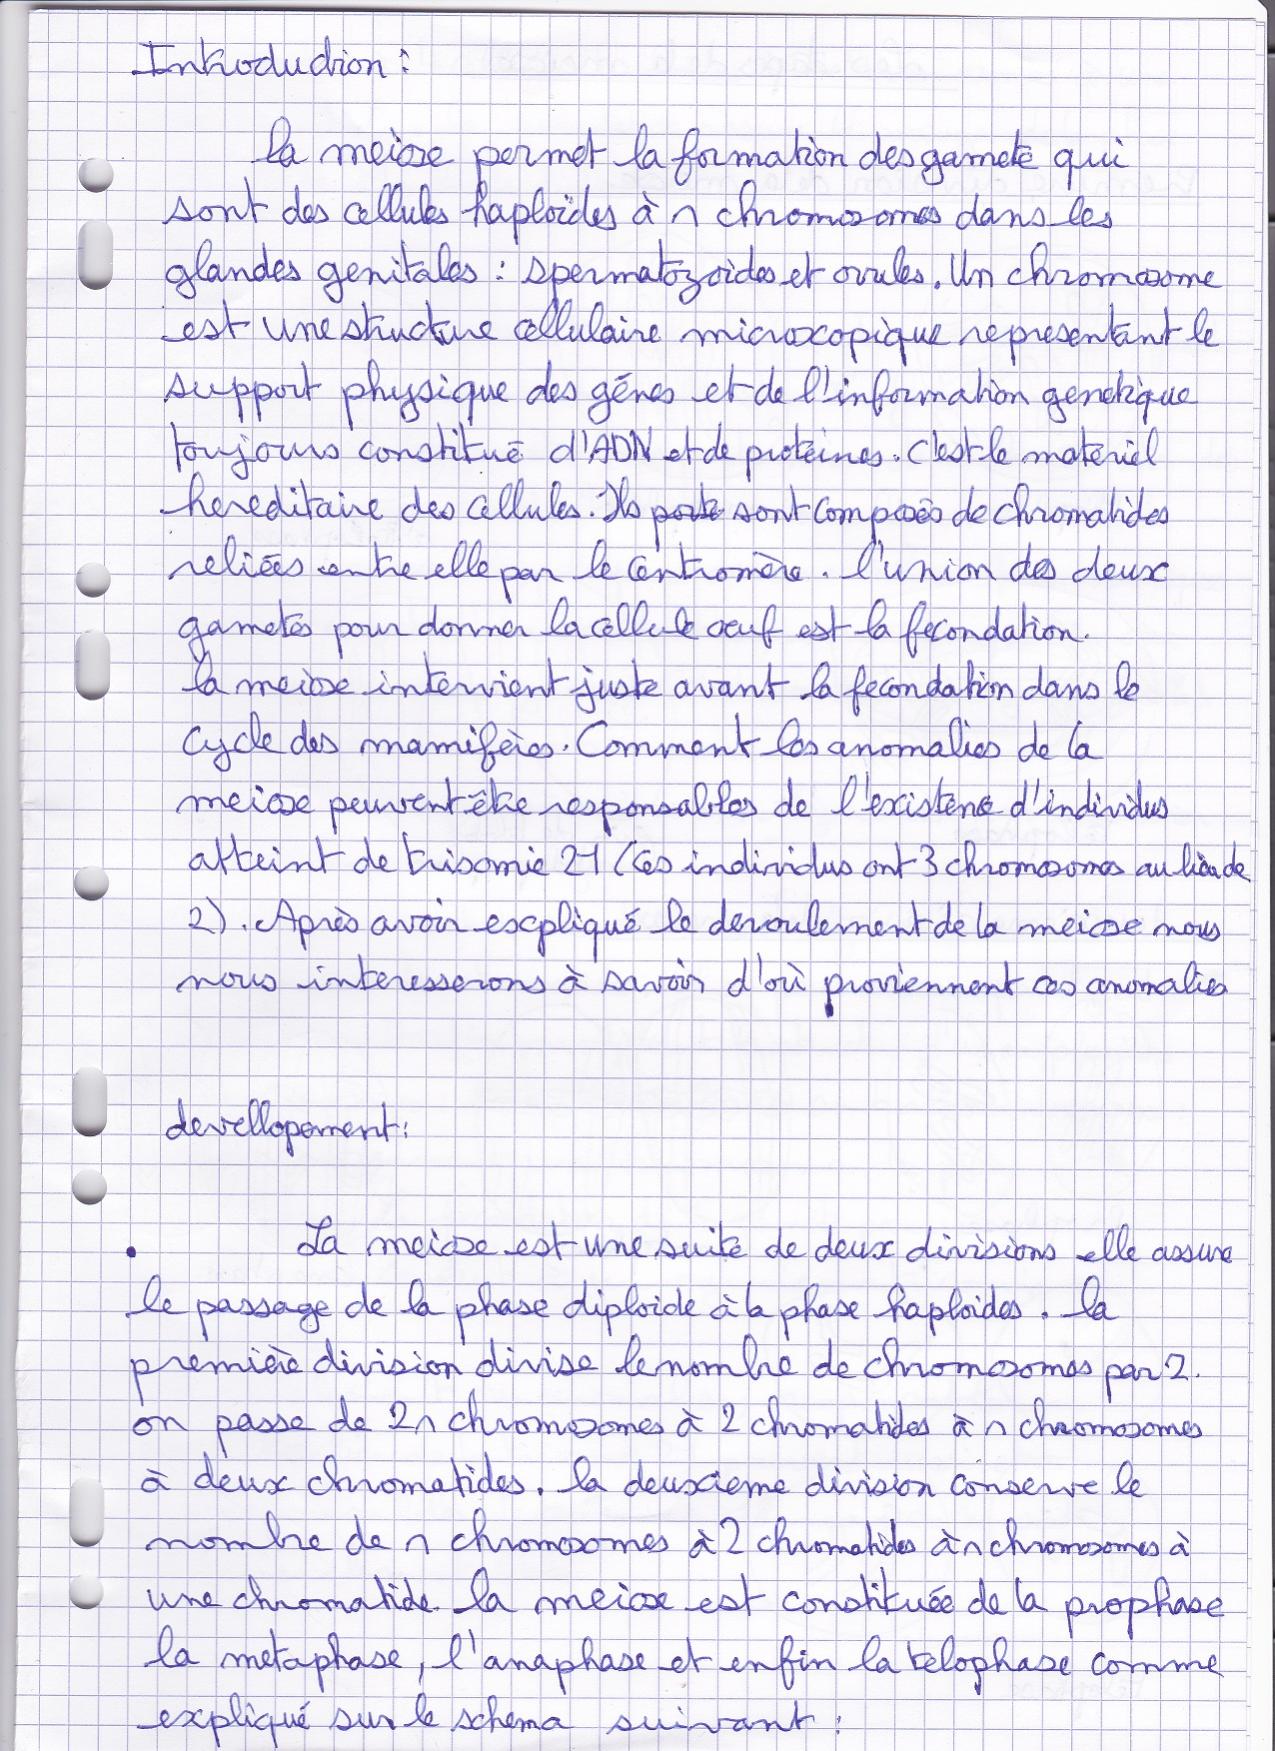 Introduction :
la meiose permet la formation des gamete qui
sont des cellules haploïdes à n chromosomes dans les
glandes genitales : spermatozoides et ovules. Un chromosome
est une structure cellulaire microxcopique representant le
support physique des génes et de l'information genetique
toujours constitué d'ADN et de proteines. C'est le materiel
hereditaire des cellules. Ils porte sont composés de chromatides
reliées entre elle par le centromère. l'union des deux
gametes pour donner la cellule oeuf est la fecondation.
la meiose intervient juste avant la fecondation dans le
cycle des mamifères. Comment les anomalies de la
meiose peuvent être responsables de l'existence d'individus
atteint de trisomie 21 (ces individus ont 3 chromosomes au lieu de
2). Après avoir expliqué le deroulement de la meiose nous
nous interesserons à savoir d'où proviennent ces anomalies
devellopement :
• La meiose est une suite de deux divisions elle assure
le passage de la phase diploide à la phase haploides. la
première division divise le nombre de chromosomes par 2.
on passe de 2n chromosomes à 2 chromatides à n chromosomes
à deux chromatides. la deuxieme division conserve le
nombre de n chromosomes à 2 chromatides à n chromosomes à
une chromatide. la meiose est constituée de la prophase
la metaphase, l'anaphase et enfin la telophase comme
expliqué sur le schema suivant :